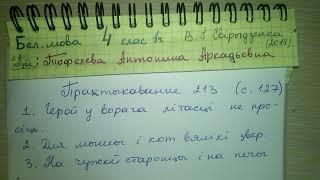 Бел. мова 4 клас 1ч В. І. Свірыдзенка
(2018)
Тофелева Антонина Аркадьевна
Практыкаванне 213 (с. 127)
1. Герой у ворага літасці не про-
сіць.
2. Для мышы і кот вялікі звер.
3. На чужой старонцы і на печы